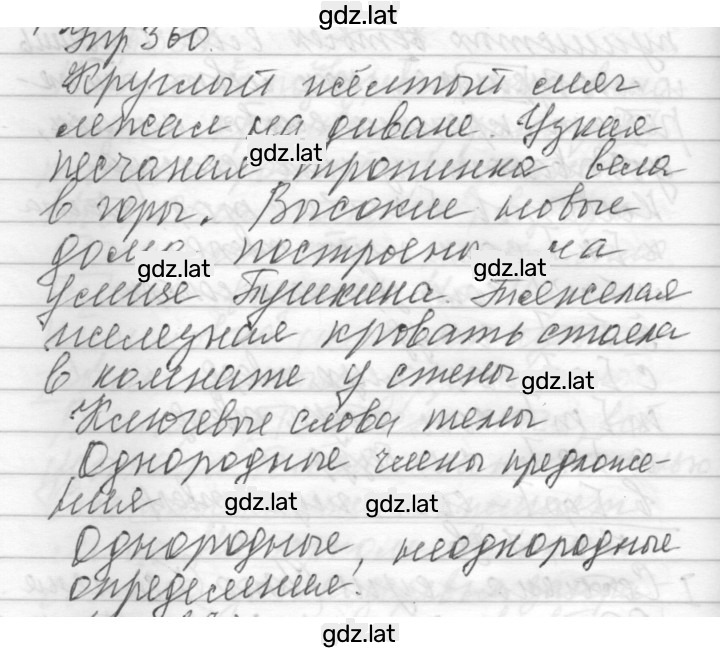 gdz.lat
Упр 360.
Круглый жёлтый мяч
лежал на диване. Узкая
gdz.lat
песчаная тропинка вела
в горы. Высокие новые
дома построены на
gdz.lat gdz.lat
улице Пушкина. Тяжелая
железная кровать стояла
в комнате у стены
gdz.lat
Ключевые слова темы
Однородные члены предложе-
ния
gdz.lat gdz.lat
Однородные, неоднородные
определения.
gdz.lat